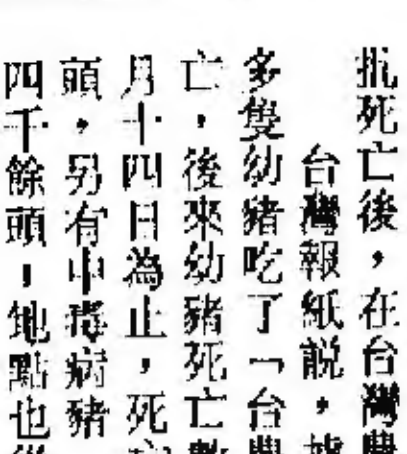 批死亡後，在台灣農
台灣報紙説，據
多隻幼豬吃了「台農
亡，後來幼豬死亡數
月十四日為止，死亡
頭，另有中毒病豬
四千餘頭，地點也從